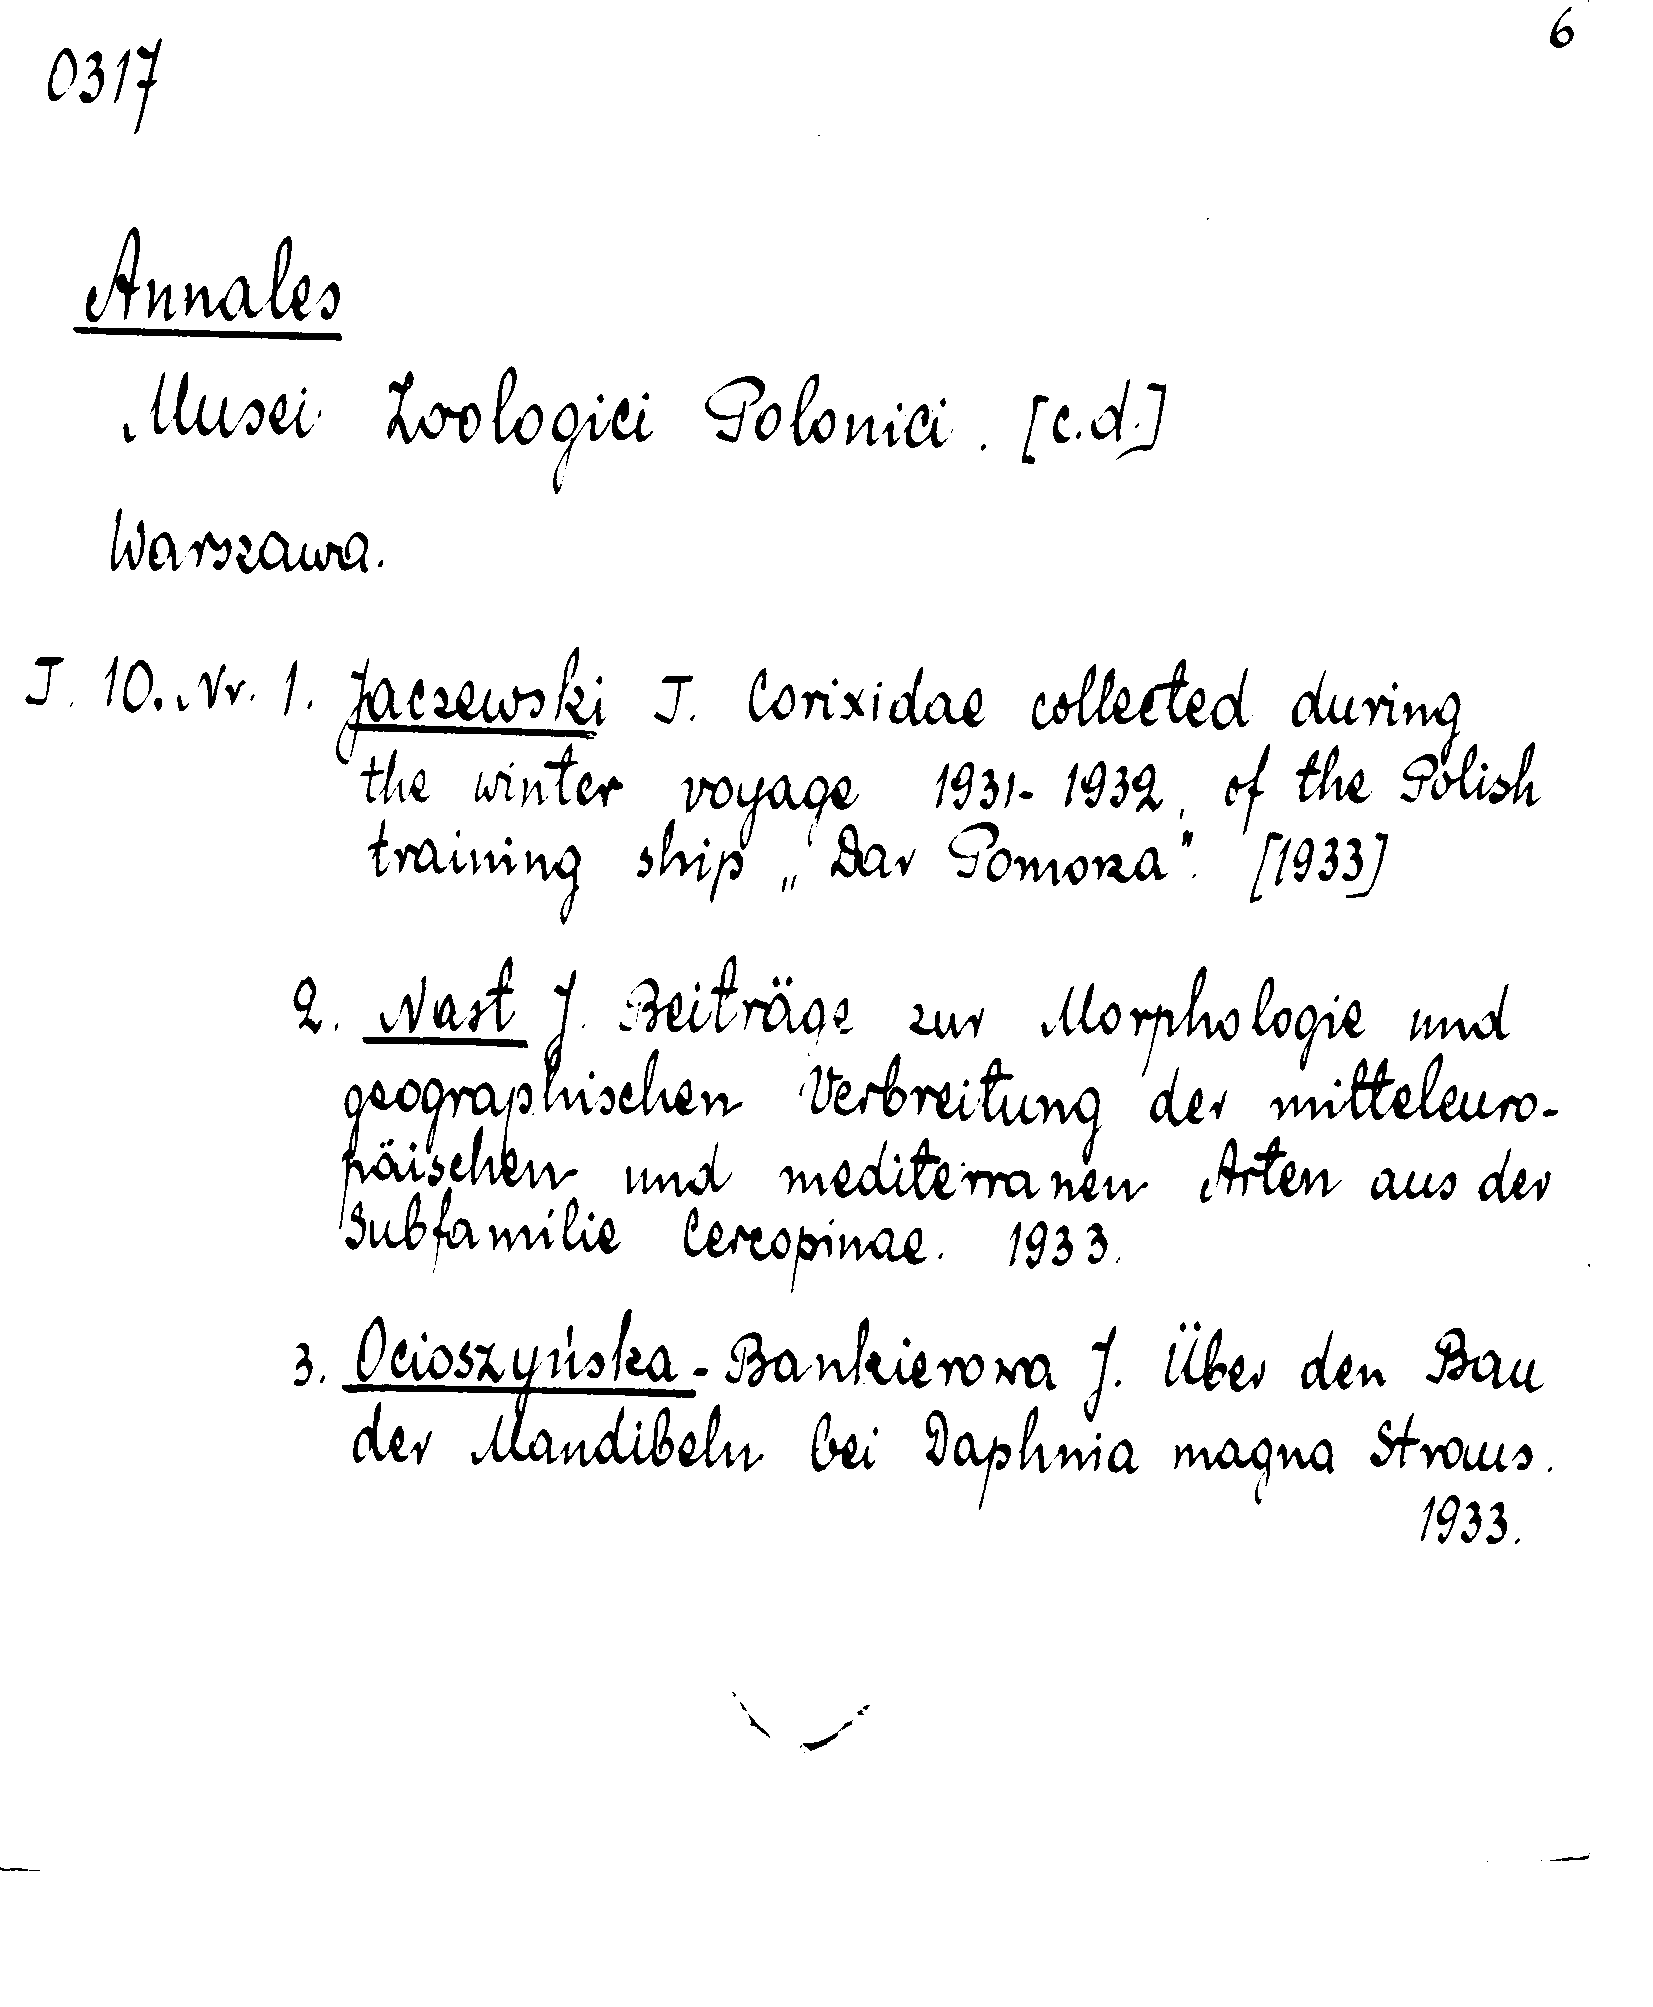 6
0317
Annales
Musei Zoologici Polonici. [c.d.]
Warszawa.
T. 10. Nr. 1. Jaczewski T. Corixidae collected during
the winter voyage 1931-1932, of the Polish
training ship „Dar Pomorza". [1933]
2. Nast J. Beiträge zur Morphologie und
geographischen Verbreitung der mitteleuro-
päischen und mediterranen Arten aus der
Subfamilie Cercopinae. 1933.
3. Ocioszyńska-Bankierowa J. Über den Bau
der Mandibeln bei Daphnia magna Straus.
1933.